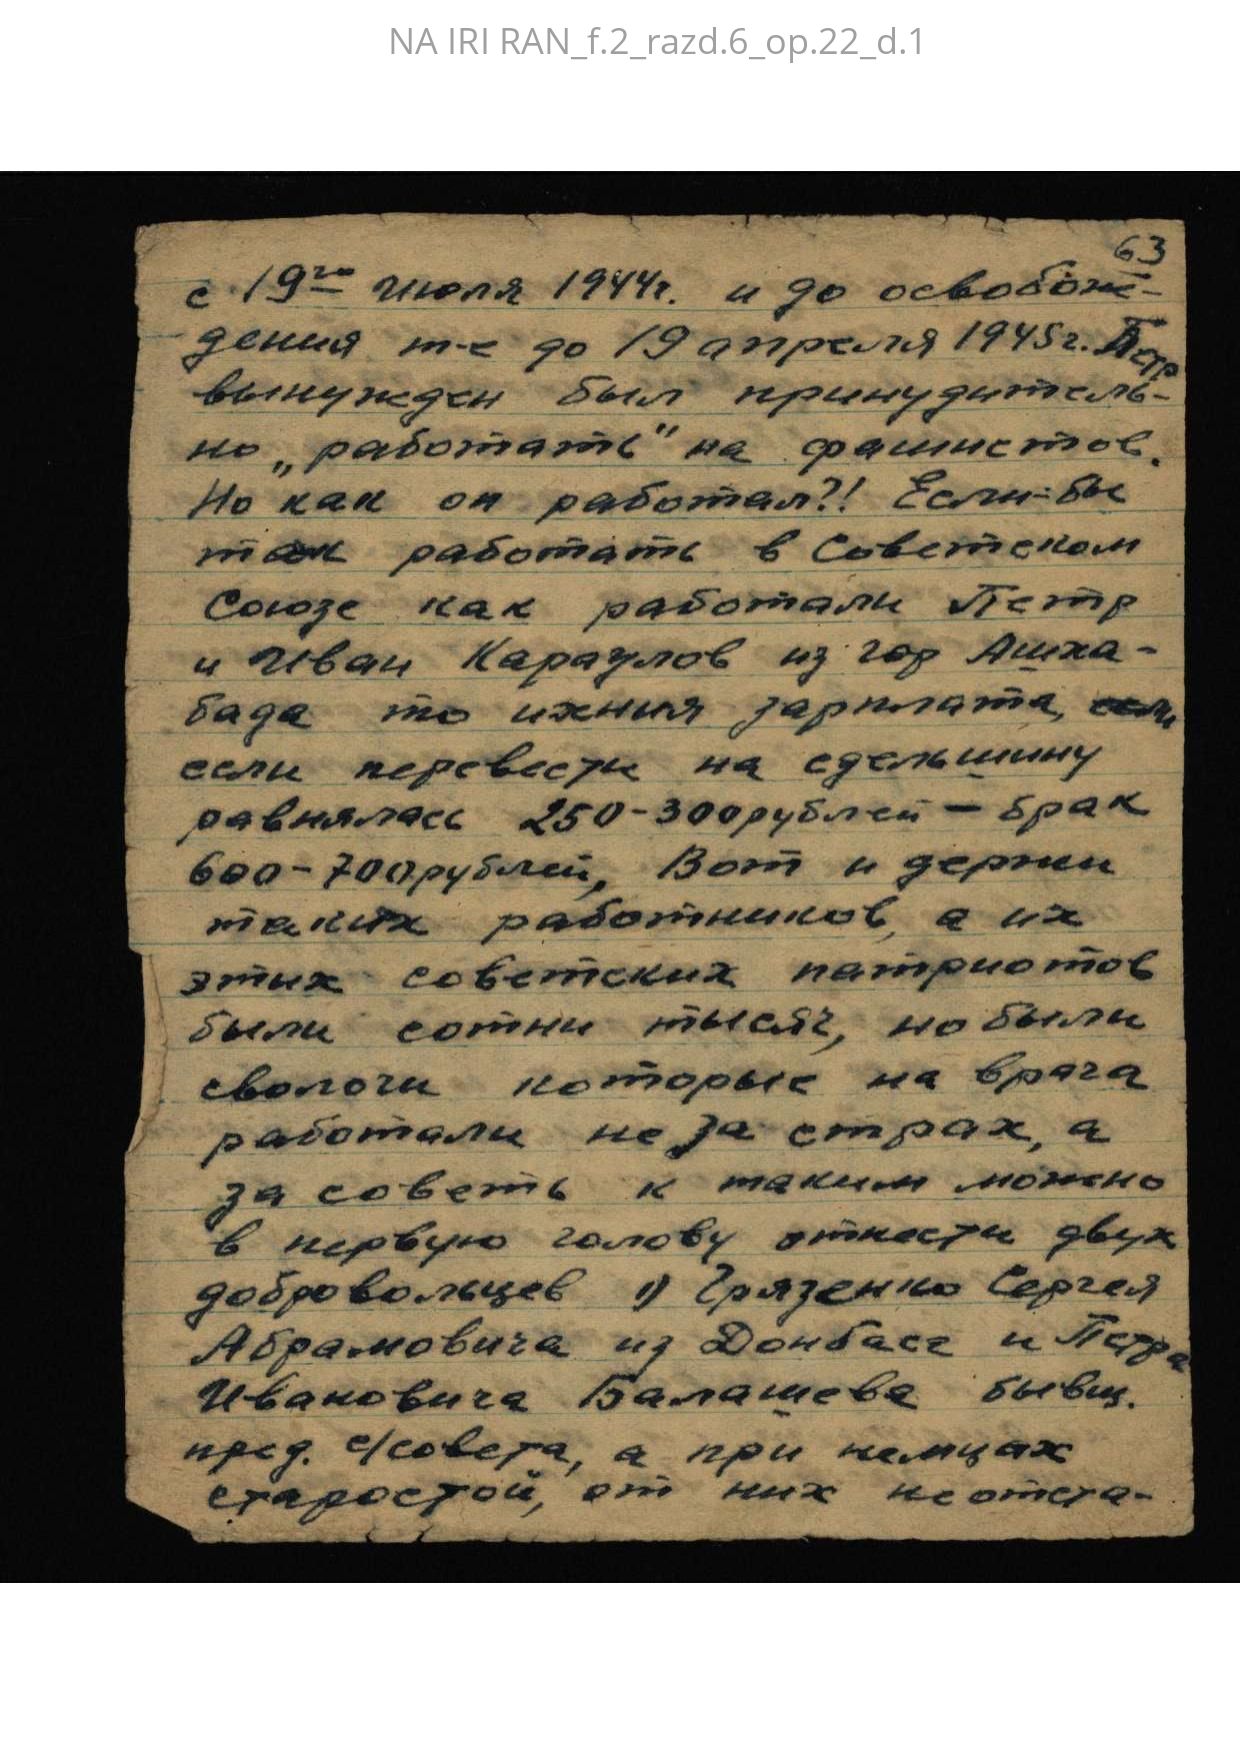 NA IRI RAN_f.2_razd.6_op.22_d.1
63
с 19го Июля 1944г. и до освобож-
дения т-е до 19 апреля 1945г. Петр
вынужден был принудитель-
но „работать" на фашистов.
Но как он работал?! Если-бы
так работать в Советском
Союзе как работали Петр
и Иван Караулов из гор Ашха-
бада то ихния зарплата,
если перевести на сдельщину
равнялась 250-300 рублей — брак
600-700 рублей, Вот и держи
таких работников, а их
этих советских патриотов
были сотни тысяч, но были
сволочи которые на врага
работали не за страх, а
за советь к таким можно
в первую голову отнести двух
добровольцев 1) Грязенко Сергея
Абрамовича из Донбасс и Петра
Ивановича Балашева бывш.
пред. с/совета, а при немцах
старостой, от них не отста-